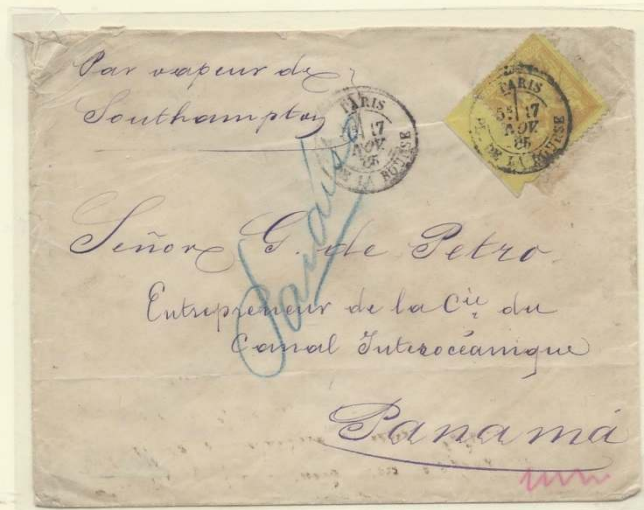 Par vapeur de
Southampton
PARIS
5E 17
NOV
85
PL. DE LA BOURSE
PARIS
5E 17
NOV
85
PL. DE LA BOURSE
Paraiso
Señor G. de Petro
Entrepreneur de la Cie du
Canal Interocéanique
Panamá